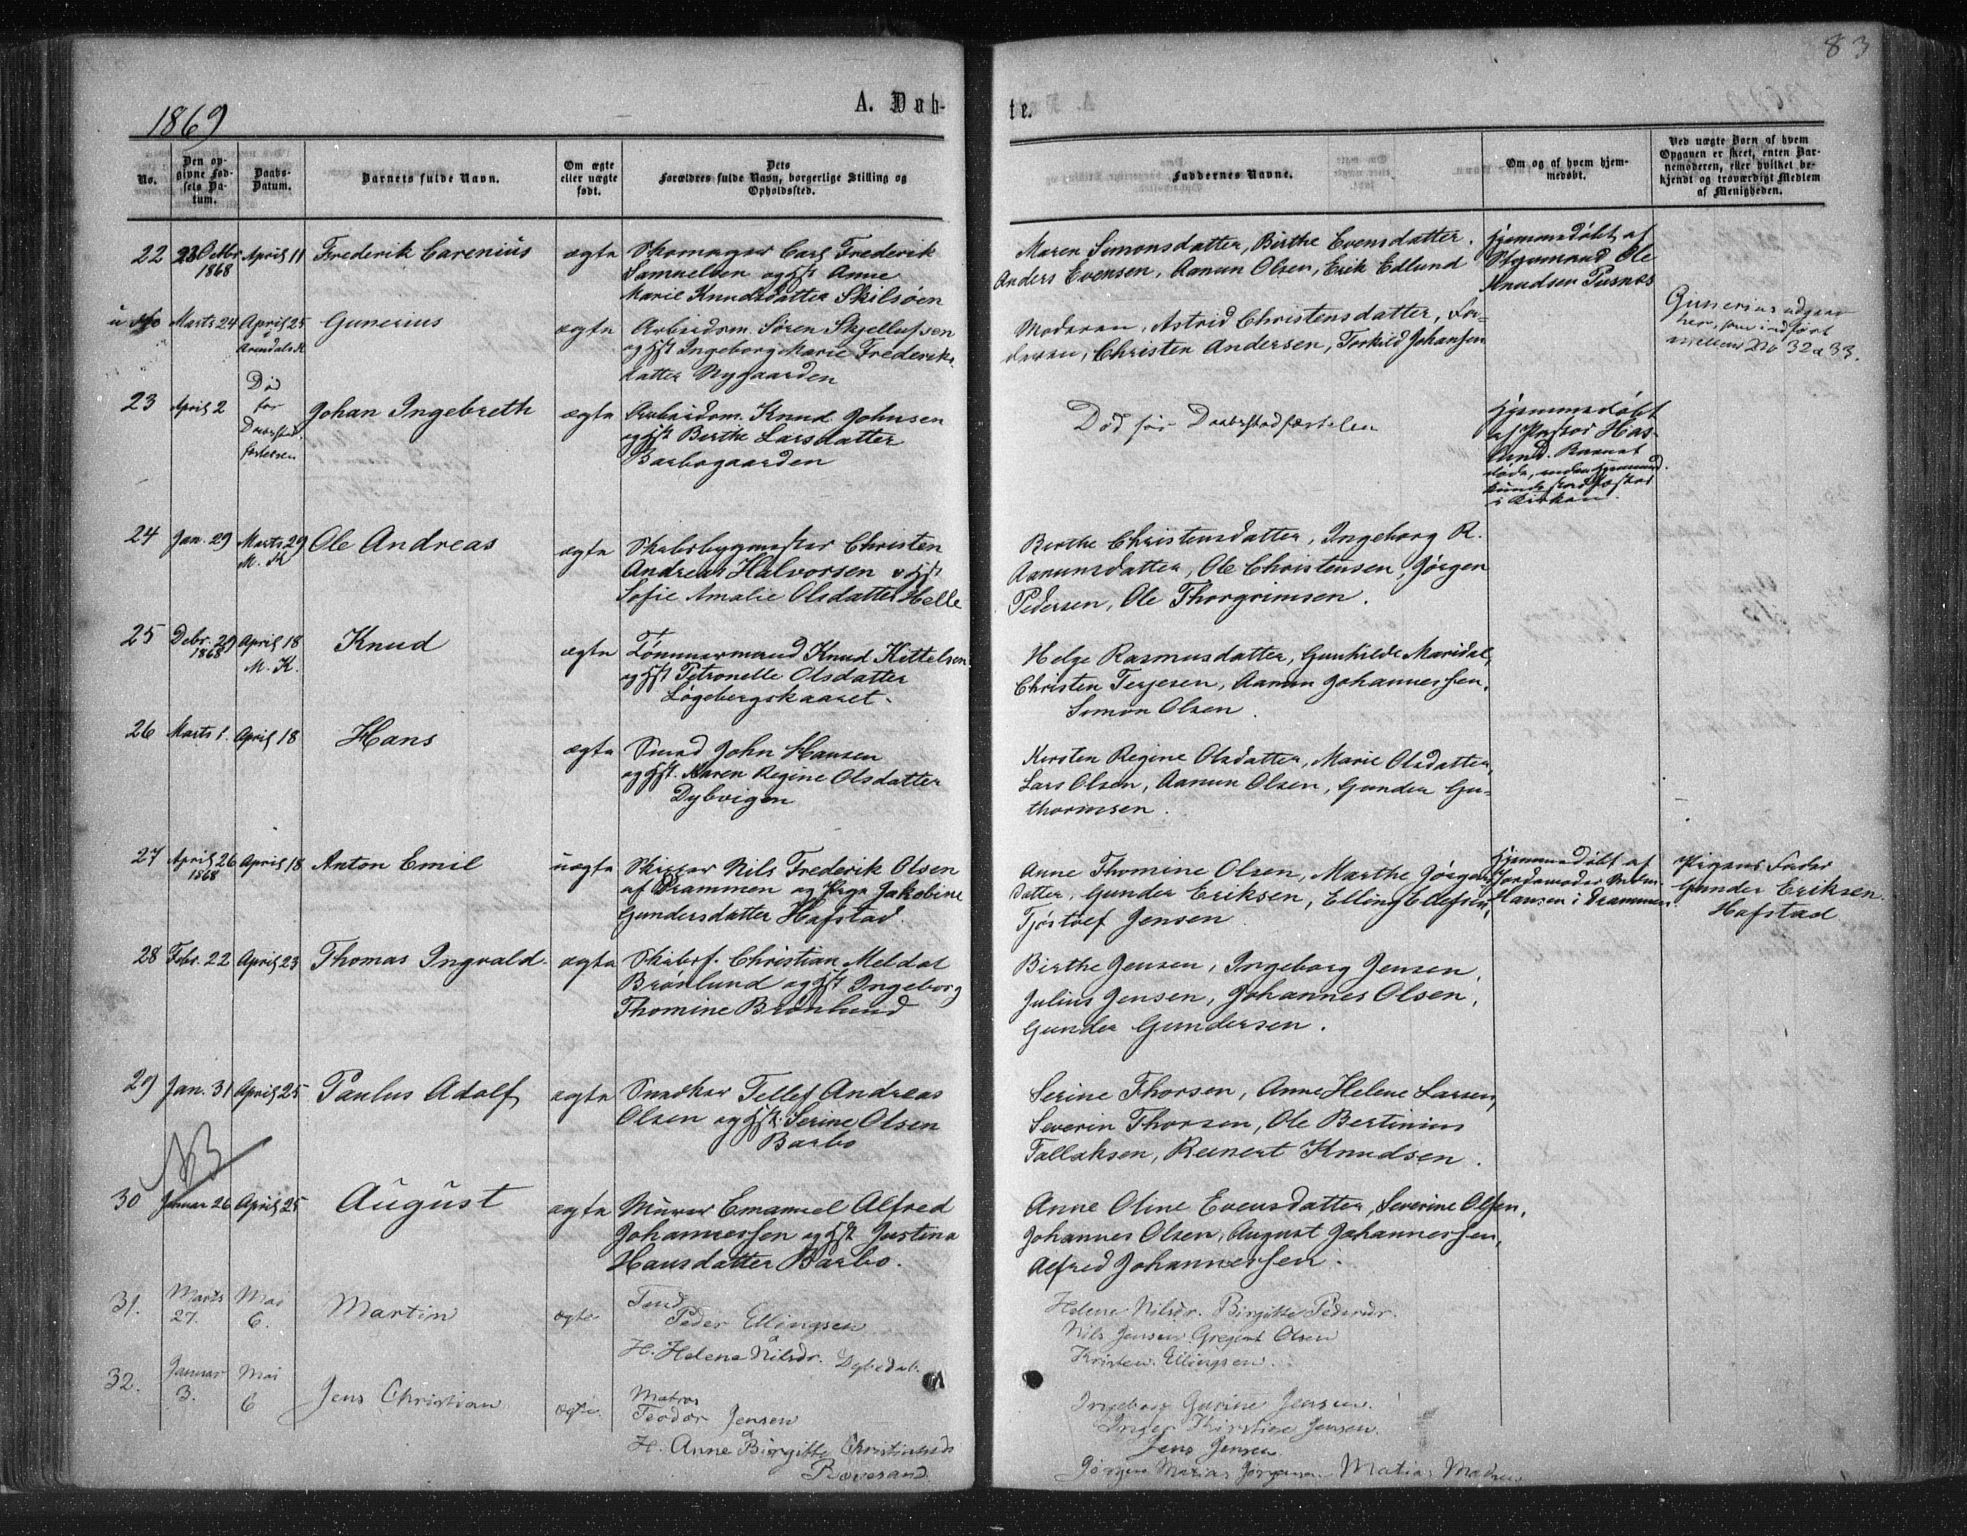 83
1869
A. Døb-
te.
No.
Den opgivne Fødsels Datum.
Daabs-Datum.
Barnets fulde Navn.
Om ægte eller uægte født.
Dets Forældres fulde Navn, borgerlige Stilling og Opholdssted.
Faddernes Navne.
Om og af hvem hjemmedøbt.
Ved uægte Børn af hvem Opgaven er skeet, enten Barnemoderen, eller hvilket bekjendt og troværdigt Medlem af Menigheden.
22 23 Octbr 1868 April 11 Frederik Carenius ægte
Skomager Carl Frederik
Samuelsen og Hst Anne
Marie Knudsdatter Skilsøen
Maren Simonsdatter, Birthe Evensdatter.
Anders Evensen, Aanun Olsen, Erik Edlund
Hjemmedøbt af
Ole
Knudsen Pusnes
u No Marts 24 April 25 Arendals K Gunerius ægte
Arbeidsm. Søren Skjellufsen
og Hst Ingeborg Marie Frederiks-
datter Nygaarden
Moderen, Astrid Christensdatter, Fa-
deren, Christen Andersen, Torkild Johansen
Gunerius udgaar
her, som indført
mellem No 32 a 33.
23 April 2 Død før Daabsstad-
fæstelsen Johan Ingebreth ægte
Arbeidsm. Knud Johnsen
og Hst Berthe Larsdatter
Barbogaarden
Død før Daabsstadfæstelsen
Hjemmedøbt
af Pastor Has-
lund. Barnet
døde, inden
kunde stadfæstes
i Kirken.
24 Jan. 29 Marts 29 M. K Ole Andreas ægte
Skibsbygmester Christen
Andreas Halvorsen og Hst
Sofie Amalie Olsdatter Helle
Berthe Christensdatter, Ingeborg R.
Aanunsdatter, Ole Christensen, Jørgen
Pedersen, Ole Thorgrimsen.
25 Debr. 29 1868 April 18 M. K. Knud ægte
Tømmermand Knud Kittelsen
og Hst Petronelle Olsdatter
Løgebergskaaret.
Helge Rasmusdatter, Gunhilde Mæridal,
Christen Terjesen, Aanun Johannessen,
Simon Olsen.
26 Marts 1. April 18 Hans ægte
Smed John Hansen
og Hst. Karen Regine Olsdatter
Dybvigen
Kirsten Regine Olsdatter, Marie Olsdatter,
Lars Olsen, Aanun Olsen, Gunder Gu-
thormsen.
27 April 26 1868 April 18 Anton Emil uægte
Skipper Nils Frederik Olsen
af Drammen og Pige Jakobine
Gundersdatter Hafstad.
Anne Thomine Olsen, Marthe Jørgens
datter, Gunder Eriksen, Elling Ellefsen,
Tjøstolf Jensen
Hjemmedøbt af
Jordemoder
Hansen i Drammen.
Pigens Fader
Gunder Eriksen
Hafstad
28 Febr. 22 April 23 Thomas Ingvald. ægte
Skibsf. Christian Meldal
Brønlund og Hst Ingeborg
Thomine Brønlund
Birthe Jensen, Ingeborg Jensen,
Julius Jensen, Johannes Olsen,
Gunder Gundersen.
29 Jan. 31 April 25 Paulus Adolf ægte
Snedker Tellef Andreas
Olsen og Hst. Serine Olsen
Barbo
Serine Thorsen, Anne Helene Larsen,
Severin Thorsen, Ole Bertinius
Tallaksen, Reinert Knudsen.
NB
30 Januar 26 April 25 August ægte
Murer Emanuel Alfred
Johannessen og Hst Justina
Hansdatter Barbo.
Anne Oline Evensdatter, Severine Olsen,
Johannes Olsen, August Johannessen,
Alfred Johannessen.
31. Marts 27. Mai 6. Martin ægte
Peder Ellingsen
H. Helene Nilsdr. Dybedal.
Helene Nilsdr. Birgitte Pedersdr.
Nils Jensen Gregert Olsen
Kristen Ellingsen.
32. Januar 3. Mai 6 Jens Christian ægte.
Matros
Teodor Jensen
H. Anne Birgitte Christiansd
Rævesand.
Ingeborg Gurine Jensen.
Inger Kirstine Jensen.
Jens Jensen.
Jørgen Matias Jørgensen Matias Madsen